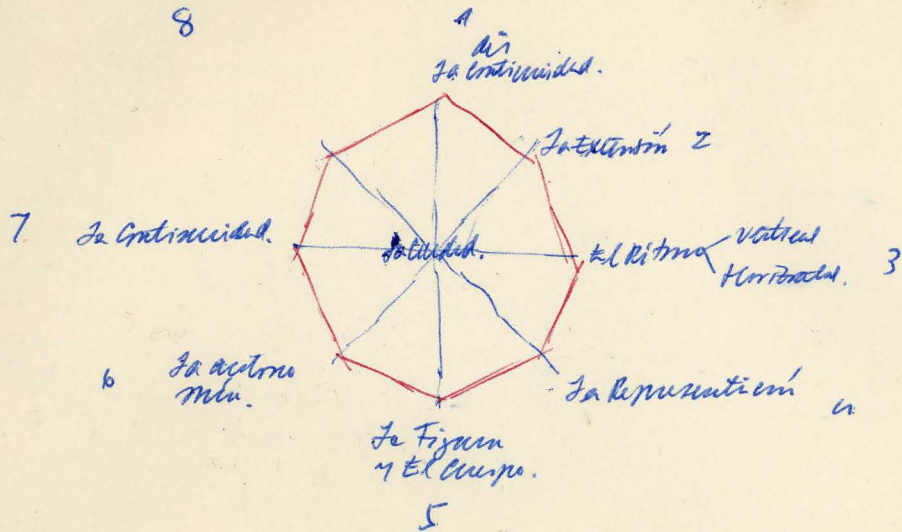 8
1
dis
La Continuidad.
La Extensión 2
7 La Continuidad.
La Ciudad.
El Ritmo
vertical
Horizontal.
3
6
La autono
mía.
La Representación
4
La Figura
y El Cuerpo.
5